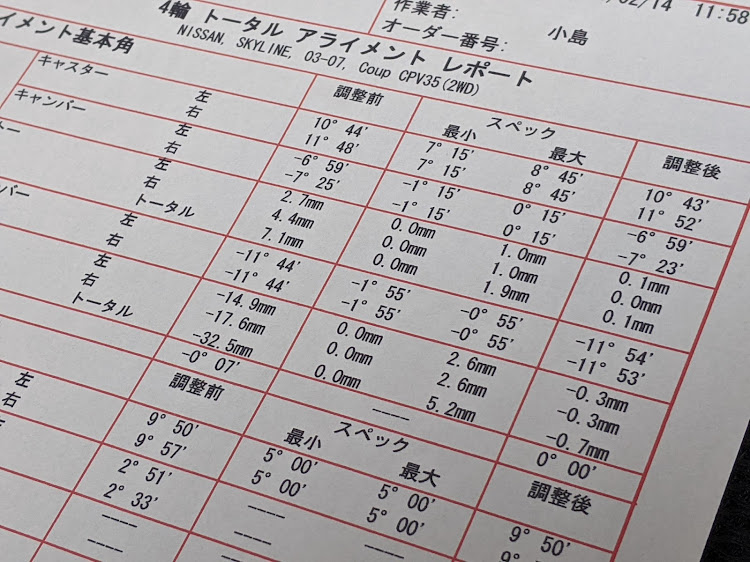 02/14 11:58
作業者: 小島
オーダー番号:
4輪 トータル アライメント レポート
NISSAN, SKYLINE, 03-07, Coup CPV35(2WD)
イメント基本角 調整前 スペック 調整後
最小 最大
キャスター 左 10° 44' 7° 15' 8° 45' 10° 43'
右 11° 48' 7° 15' 8° 45' 11° 52'
キャンバー 左 -6° 59' -1° 15' 0° 15' -6° 59'
右 -7° 25' -1° 15' 0° 15' -7° 23'
トー 左 2.7mm 0.0mm 1.0mm 0.1mm
右 4.4mm 0.0mm 1.0mm 0.0mm
トータル 7.1mm 0.0mm 1.9mm 0.1mm
ンバー 左 -11° 44' -1° 55' -0° 55' -11° 54'
右 -11° 44' -1° 55' -0° 55' -11° 53'
左 -14.9mm 0.0mm 2.6mm -0.3mm
右 -17.6mm 0.0mm 2.6mm -0.3mm
トータル -32.5mm 0.0mm 5.2mm -0.7mm
-0° 07' ---- 0° 00'
調整前 スペック 調整後
最小 最大
左 9° 50' 5° 00' 5° 00' 9° 50'
右 9° 57' 5° 00' 5° 00'
2° 51' ---- ----
2° 33' ---- ----